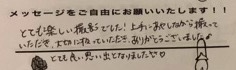 メッセージをご自由にお願いいたします!!
とても楽しい撮影でした! 上手にあやしながら撮って
いただき、大切に扱っていただき、ありがとうございました
とても良い思い出となりました♡